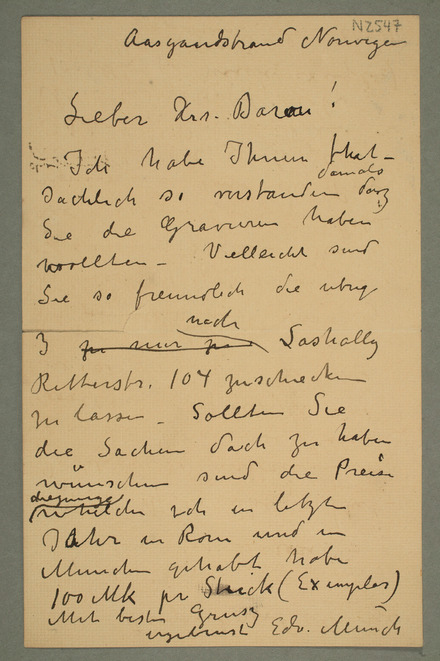 N2547
Aasgaardstrand Norwegen
Lieber Hrs. Baron!
Ich habe Ihnen that-
sächlich so verstanden damals dasz
Sie die Gravuren haben
wollten – Vielleicht sind
Sie so freundlich die übrige
3 zu mir zu nach Sashally
Ritterstr. 104 zuschicken
zu lassen – Sollten Sie
die Sachen doch zu haben
wünschen sind die Preise
diejenige welche ich in letzten
Jahr in Rom und in
München gehabt habe
100 Mk pr Stück (Exemplar)
Mit besten Grusz
ergebenst Edv. Munch